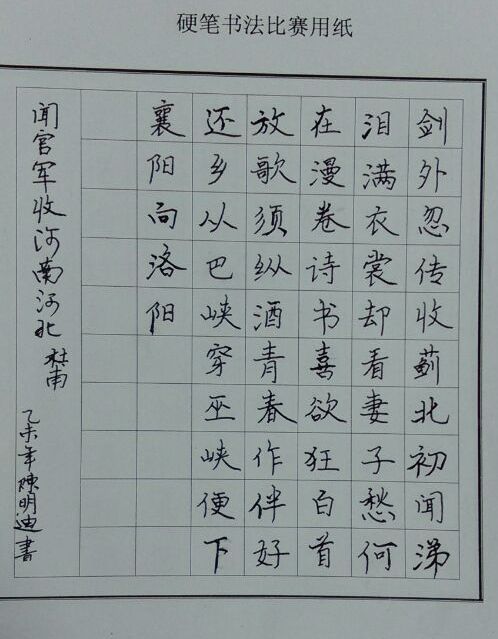 硬笔书法比赛用纸
剑外忽传收蓟北初闻涕
泪满衣裳却看妻子愁何
在漫卷诗书喜欲狂白首
放歌须纵酒青春作伴好
还乡从巴峡穿巫峡便下
襄阳向洛阳
闻官军收河南河北 杜甫
乙未年陈明迪书